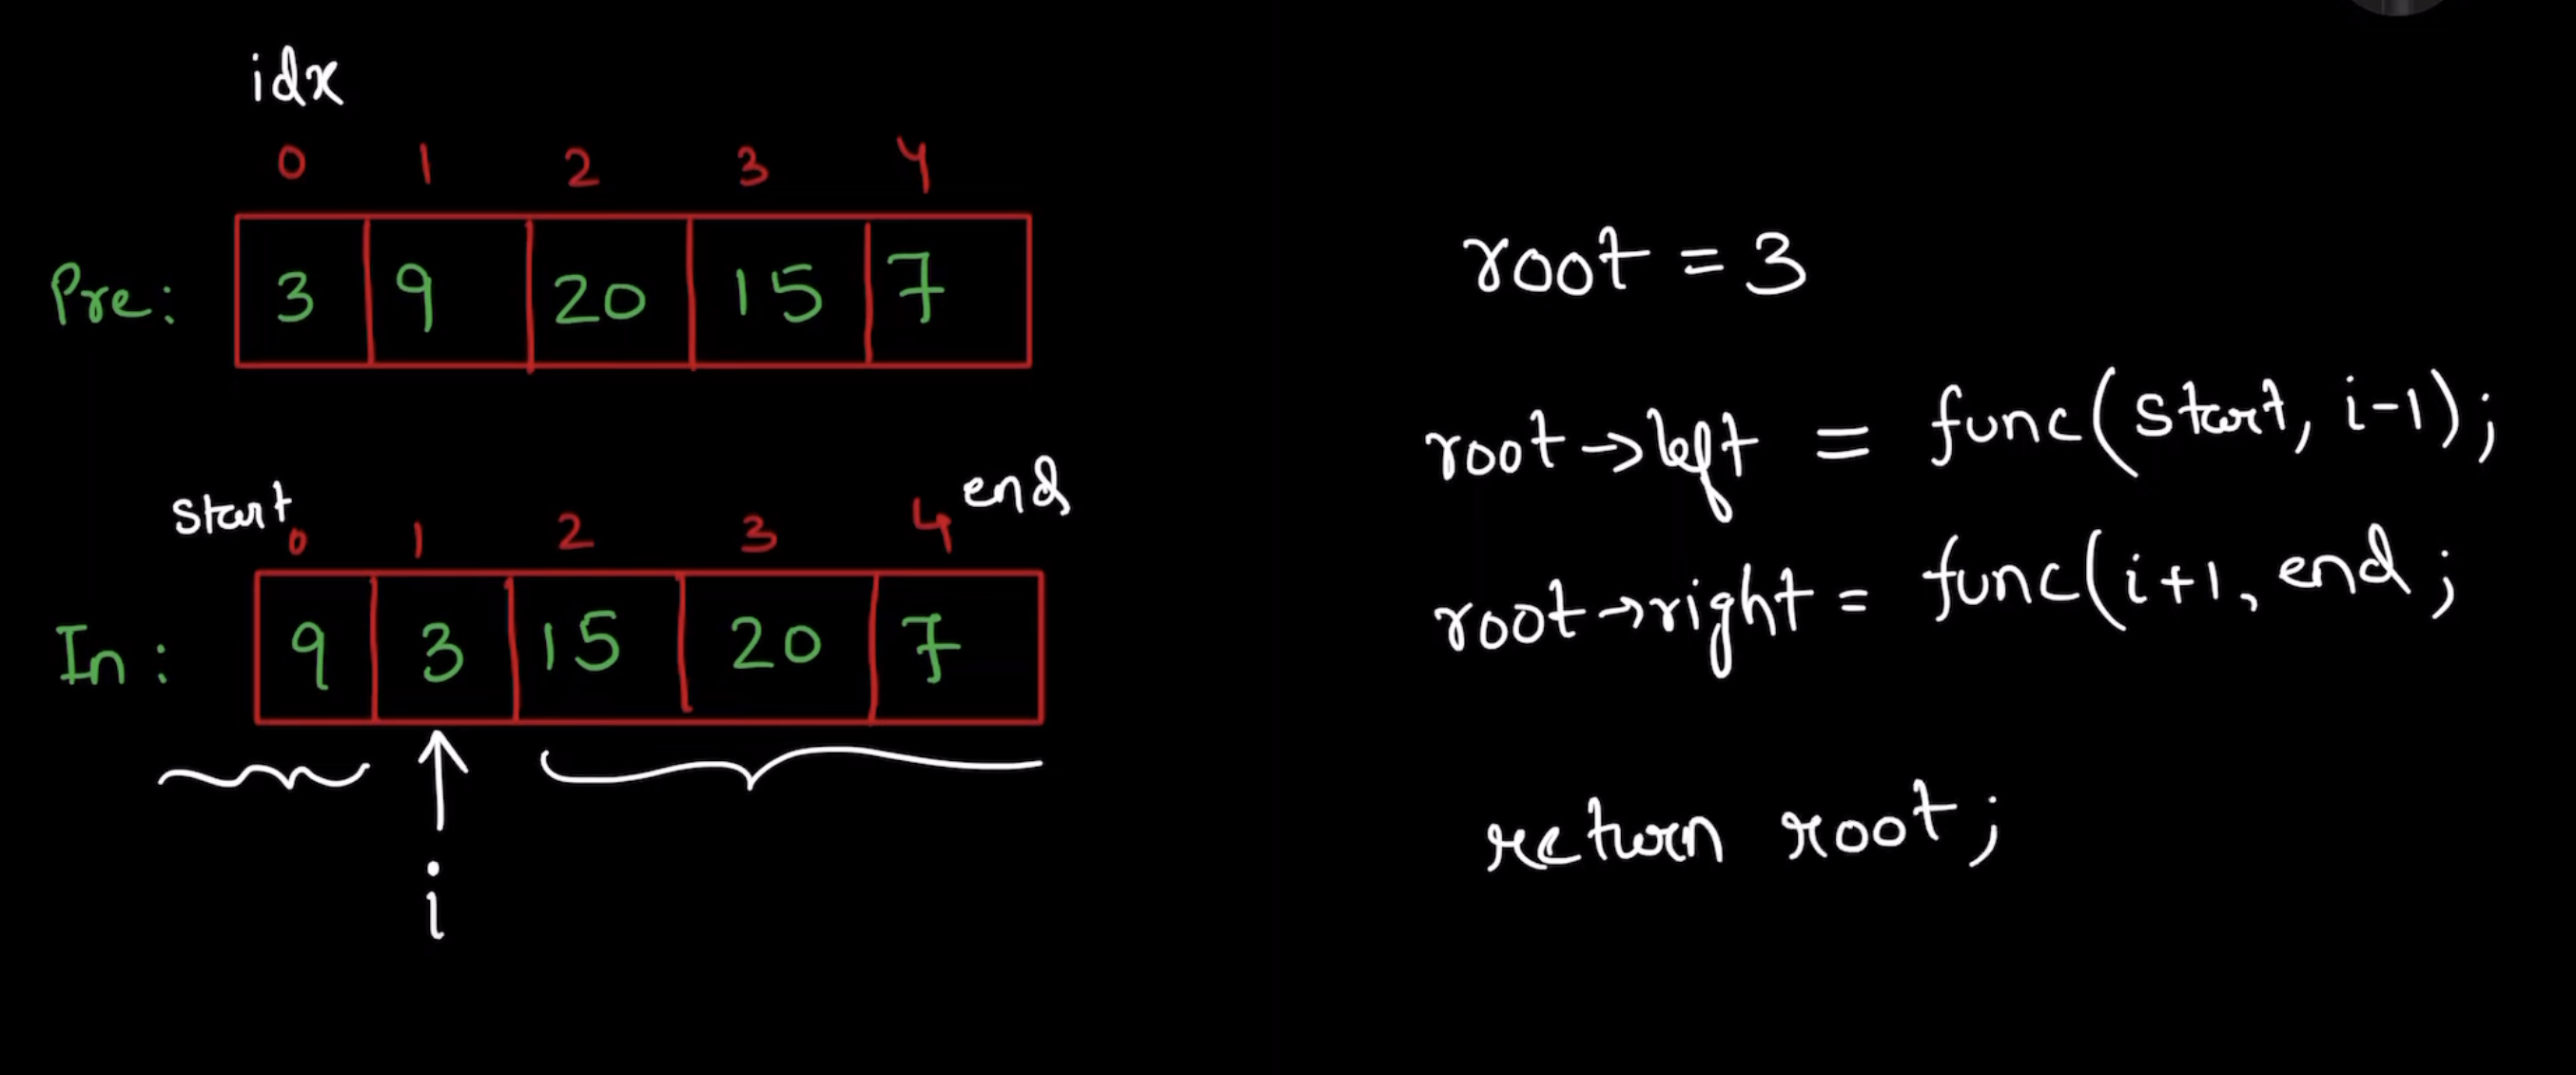 idx
0 1 2 3 4
Pre: 3 9 20 15 7
start end
0 1 2 3 4
In: 9 3 15 20 7
i
root = 3
root→left = func(start, i-1);
root→right = func(i+1, end;
return root;